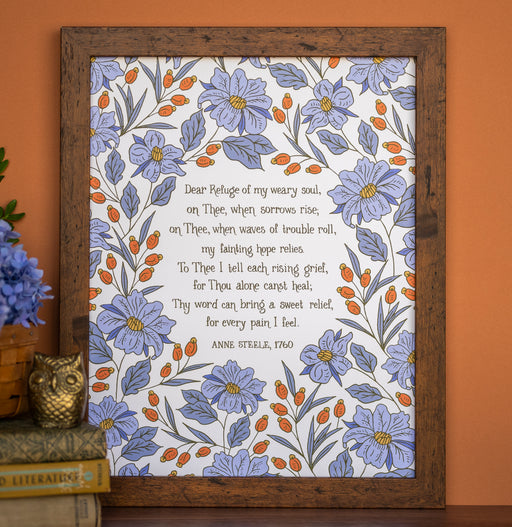 Dear Refuge of my weary soul,
on Thee, when sorrows rise;
on Thee, when waves of trouble roll,
my fainting hope relies.
To Thee I tell each rising grief,
for Thou alone canst heal;
Thy word can bring a sweet relief,
for every pain I feel.
ANNE STEELE, 1760
LITERATURE